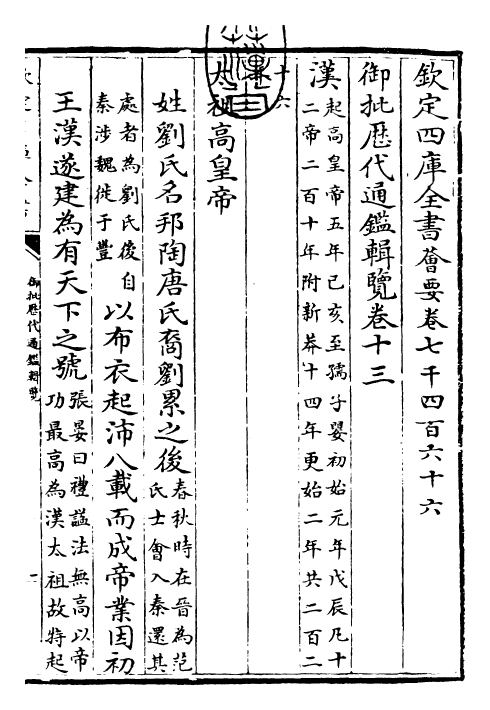 欽定四庫全書薈要卷七千四百六十六
御批歷代通鑑輯覽卷十三
漢起高皇帝五年己亥至孺子嬰初始元年戊辰凡十
二帝二百十年附新莽十四年更始二年共二百二
十六
太祖高皇帝
姓劉氏名邦陶唐氏裔劉累之後春秋時在晉為范
氏士會入秦還其
處者為劉氏後自
秦涉魏徙于豐
以布衣起沛八載而成帝業因初
王漢遂建為有天下之號張晏曰禮諡法無高以帝
功最高為漢太祖故特起
御批歷代通鑑輯覽
一